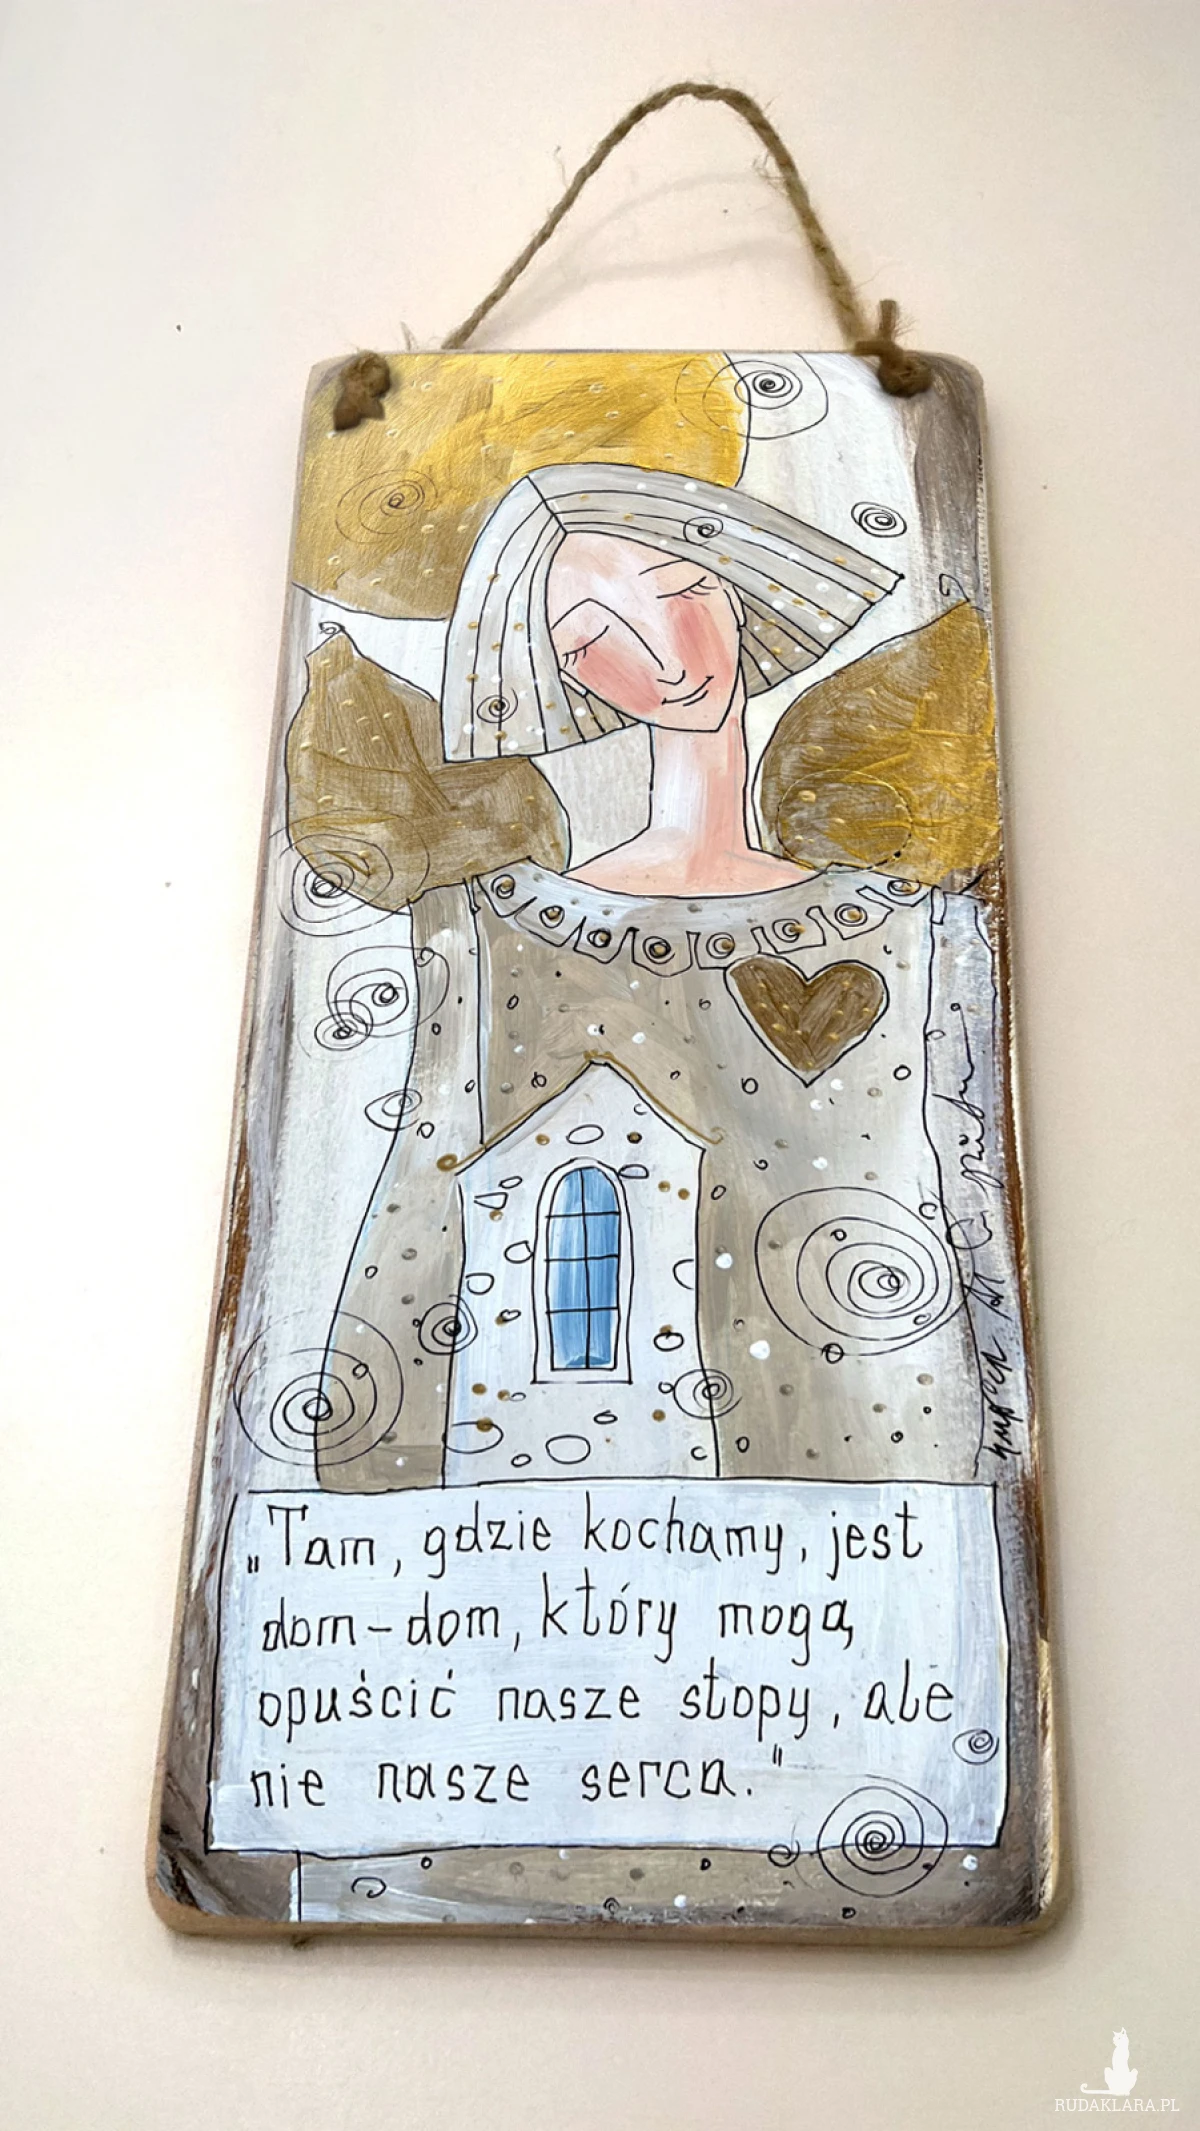 „Tam, gdzie kochamy, jest
dom-dom, który mogą
opuścić nasze stopy, ale
nie nasze serca."
RUDAKLARA.PL